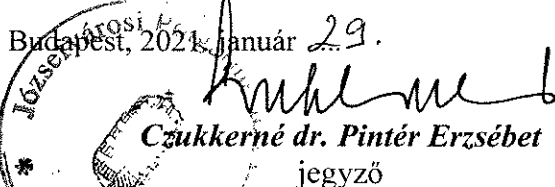 Budapest, 2021. január 29.
Józsefvárosi
Czukkerné dr. Pintér Erzsébet
jegyző